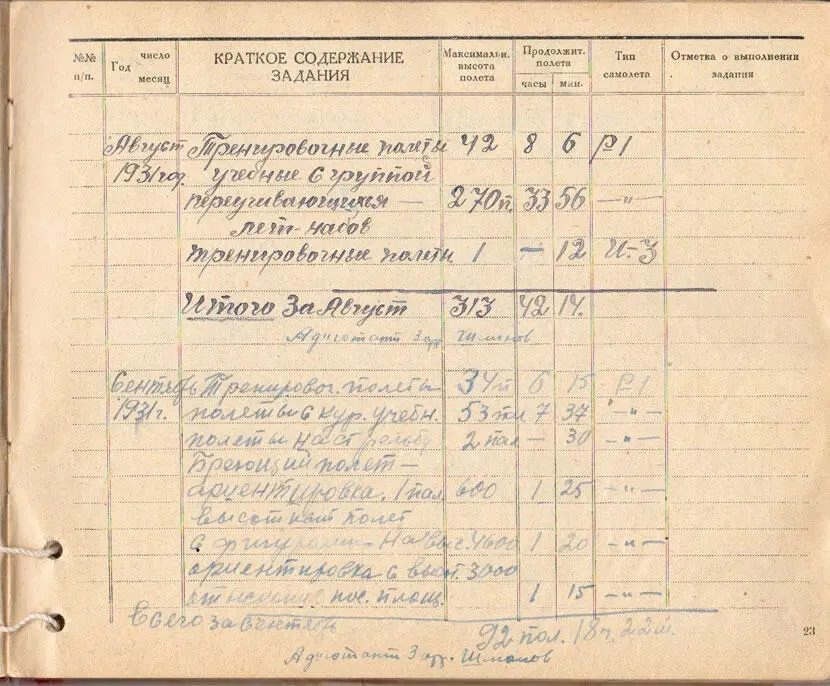 №№ п/п. Год число месяц КРАТКОЕ СОДЕРЖАНИЕ ЗАДАНИЯ Максимальн. высота полета Продолжит. полета часы мин. Тип самолета Отметка о выполнении задания
Август Тренировочные полеты 42 8 6 Р1
1931 год. учебные с группой
переучивающихся — 270 п. 33 56 —"—
лет-набов
тренировочные полеты 1 — 12 И-3
Итого за Август 313 42 14.
Адъютант 3 Шмонов
Сентябрь Трениров. полеты 34 п 6 15 Р1
1931 г. полеты с кур. учебн. 53 пол 7 37 —"—
полеты на стрельбу 2 пол — 30 —"—
Бреющий полет —
ориентировка. 1 пол. 600 1 25 —"—
высотный полет
с фигурами на выс. 4600 1 20 —"—
ориентировка с выст. 3000
отыскание пос. площ. 1 15 —"—
Всего за Сентябрь 92 пол. 18 ч. 22 м.
Адъютант 3 Шмонов
23